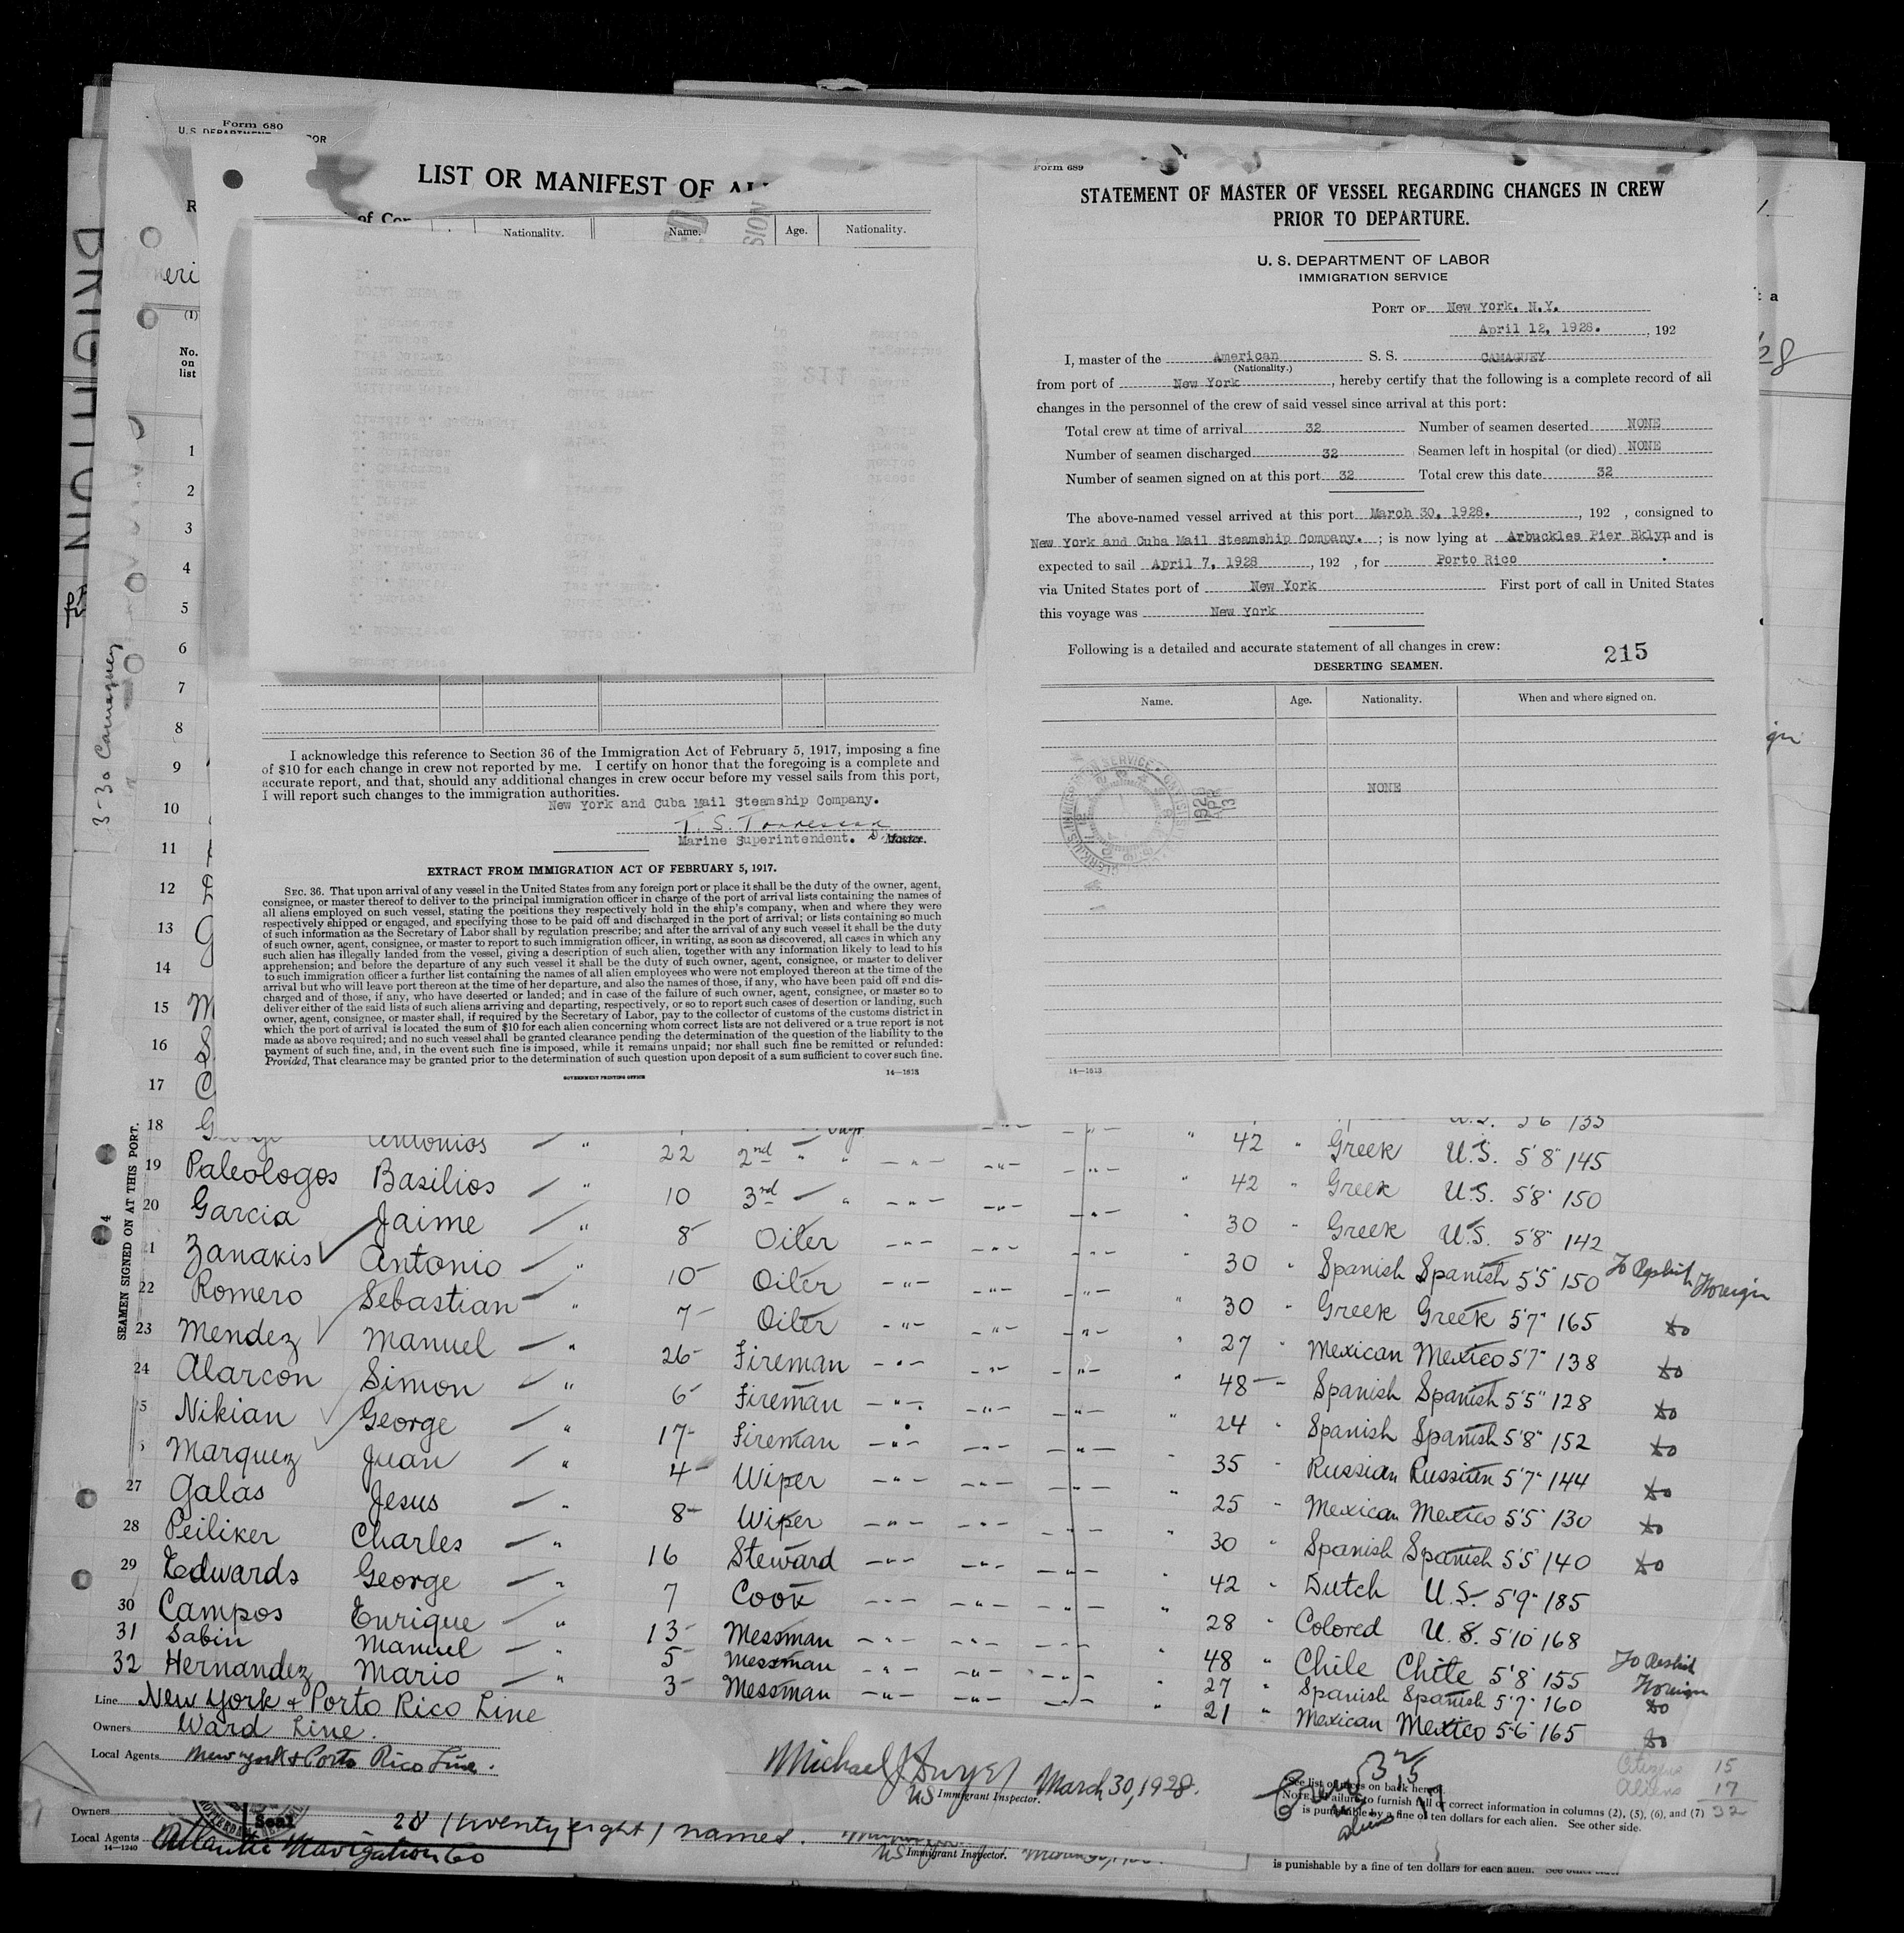 Form 680
LIST OR MANIFEST OF
Nationality. Name. Age. Nationality.
No.
on
list
1
2
3
4
5
6
7
8
9
10
11
12
13
14
15
16
17
3-30 Camaguey
214
I acknowledge this reference to Section 36 of the Immigration Act of February 5, 1917, imposing a fine
of $10 for each change in crew not reported by me. I certify on honor that the foregoing is a complete and
accurate report, and that, should any additional changes in crew occur before my vessel sails from this port,
I will report such changes to the immigration authorities.
New York and Cuba Mail Steamship Company.
Marine Superintendent. Master.
EXTRACT FROM IMMIGRATION ACT OF FEBRUARY 5, 1917.
SEC. 36. That upon arrival of any vessel in the United States from any foreign port or place it shall be the duty of the owner, agent,
consignee, or master thereof to deliver to the principal immigration officer in charge of the port of arrival lists containing the names of
all aliens employed on such vessel, stating the positions they respectively hold in the ship's company, when and where they were
respectively shipped or engaged, and specifying those to be paid off and discharged in the port of arrival; or lists containing so much
of such information as the Secretary of Labor shall by regulation prescribe; and after the arrival of any such vessel it shall be the duty
of such owner, agent, consignee, or master to report to such immigration officer, in writing, as soon as discovered, all cases in which any
such alien has illegally landed from the vessel, giving a description of such alien, together with any information likely to lead to his
apprehension; and before the departure of any such vessel it shall be the duty of such owner, agent, consignee, or master to deliver
to such immigration officer a further list containing the names of all alien employees who were not employed thereon at the time of the
arrival but who will leave port thereon at the time of her departure, and also the names of those, if any, who have been paid off and dis-
charged and of those, if any, who have deserted or landed; and in case of the failure of such owner, agent, consignee, or master so to
deliver either of the said lists of such aliens arriving and departing, respectively, or so to report such cases of desertion or landing, such
owner, agent, consignee, or master shall, if required by the Secretary of Labor, pay to the collector of customs of the customs district in
which the port of arrival is located the sum of $10 for each alien concerning whom correct lists are not delivered or a true report is not
made as above required; and no such vessel shall be granted clearance pending the determination of the question of the liability to the
payment of such fine, and, in the event such fine is imposed, while it remains unpaid; nor shall such fine be remitted or refunded:
Provided, That clearance may be granted prior to the determination of such question upon deposit of a sum sufficient to cover such fine.
GOVERNMENT PRINTING OFFICE 14—1613
Form 689
STATEMENT OF MASTER OF VESSEL REGARDING CHANGES IN CREW
PRIOR TO DEPARTURE.
U. S. DEPARTMENT OF LABOR
IMMIGRATION SERVICE
PORT OF New York, N.Y.
April 12, 1928. , 192
I, master of the American S. S. CAMAGUEY
(Nationality.)
from port of New York, hereby certify that the following is a complete record of all
changes in the personnel of the crew of said vessel since arrival at this port:
Total crew at time of arrival 32 Number of seamen deserted NONE
Number of seamen discharged 32 Seamen left in hospital (or died) NONE
Number of seamen signed on at this port 32 Total crew this date 32
The above-named vessel arrived at this port March 30, 1928. , 192 , consigned to
New York and Cuba Mail Steamship Company. ; is now lying at Arbuckles Pier Bklyn and is
expected to sail April 7, 1928 , 192 , for Porto Rico
via United States port of New York First port of call in United States
this voyage was New York
Following is a detailed and accurate statement of all changes in crew:
215
DESERTING SEAMEN.
Name. Age. Nationality. When and where signed on.
NONE
1928 APR 13
14—1613
SEAMEN SIGNED ON AT THIS PORT.
18 George Antonios " 22 2nd " " 42 " Greek U.S. 5'8" 145
19 Paleologos Basilios " 10 3rd " 42 " Greek U.S. 5'8" 150
20 Garcia Jaime " 8 Oiler 30 " Greek U.S. 5'8" 142
21 Zanakis Antonio " 10 Oiler 30 " Spanish Spanish 5'5" 150 Foreign
22 Romero Sebastian " 7 Oiler 30 " Greek Greek 5'7" 165 do
23 Mendez Manuel " 26 Fireman 27 " Mexican Mexico 5'7" 138 do
24 Alarcon Simon " 6 Fireman 48 " Spanish Spanish 5'5" 128 do
5 Nikian George " 17 Fireman 24 " Spanish Spanish 5'8" 152 do
Marquez Juan " 4 Wiper 35 " Russian Russian 5'7" 144 do
27 Galas Jesus " 8 Wiper 25 " Mexican Mexico 5'5" 130 do
28 Peiliker Charles " 16 Steward 30 " Spanish Spanish 5'5" 140 do
29 Edwards George " 7 Cook 42 " Dutch U.S. 5'9" 185
30 Campos Enrique " 13 Messman 28 " Colored U.S. 5'10" 168
31 Sabin Manuel " 5 Messman 48 " Chile Chile 5'8" 155 Foreign
32 Hernandez Mario " 3 Messman 27 " Spanish Spanish 5'7" 160 do
21 " Mexican Mexico 5'6" 165 do
Line New York & Porto Rico Line
Owners Ward Line.
Local Agents New York & Porto Rico Line.
Michael J Dwyer March 30, 1928.
US Immigrant Inspector.
Crew 32
aliens 17
Citizens 15
Aliens 17
32
See list of races on back hereof.
NOTE.—Failure to furnish full or correct information in columns (2), (5), (6), and (7)
is punishable by a fine of ten dollars for each alien. See other side.
Owners
Seal
28 / twenty eight / names.
Local Agents Atlantic Navigation Co
14—1240
US Immigrant Inspector.
is punishable by a fine of ten dollars for each alien.